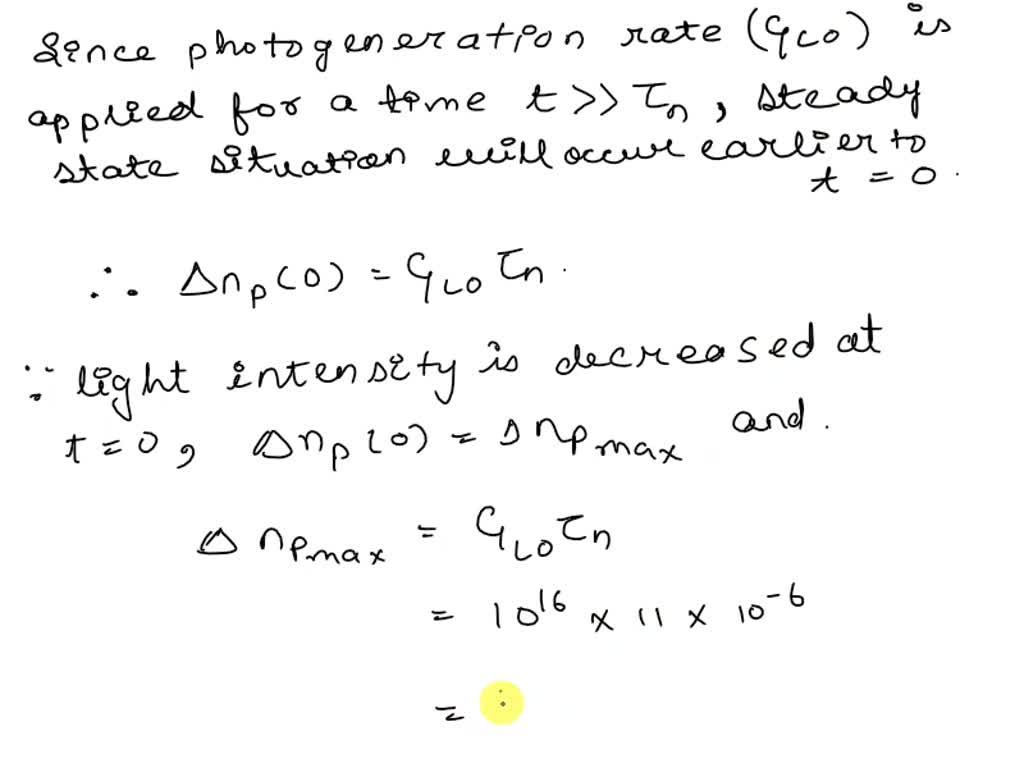 Since photogeneration rate (GLO) is
applied for a time t >> τn, steady
state situation will occur earlier to
t = 0.
∴ Δnp(0) = GLO τn.
∵ light intensity is decreased at
t = 0, Δnp(0) = Δnpmax and.
Δnpmax = GLO τn
= 10^16 × 11 × 10^-6
=